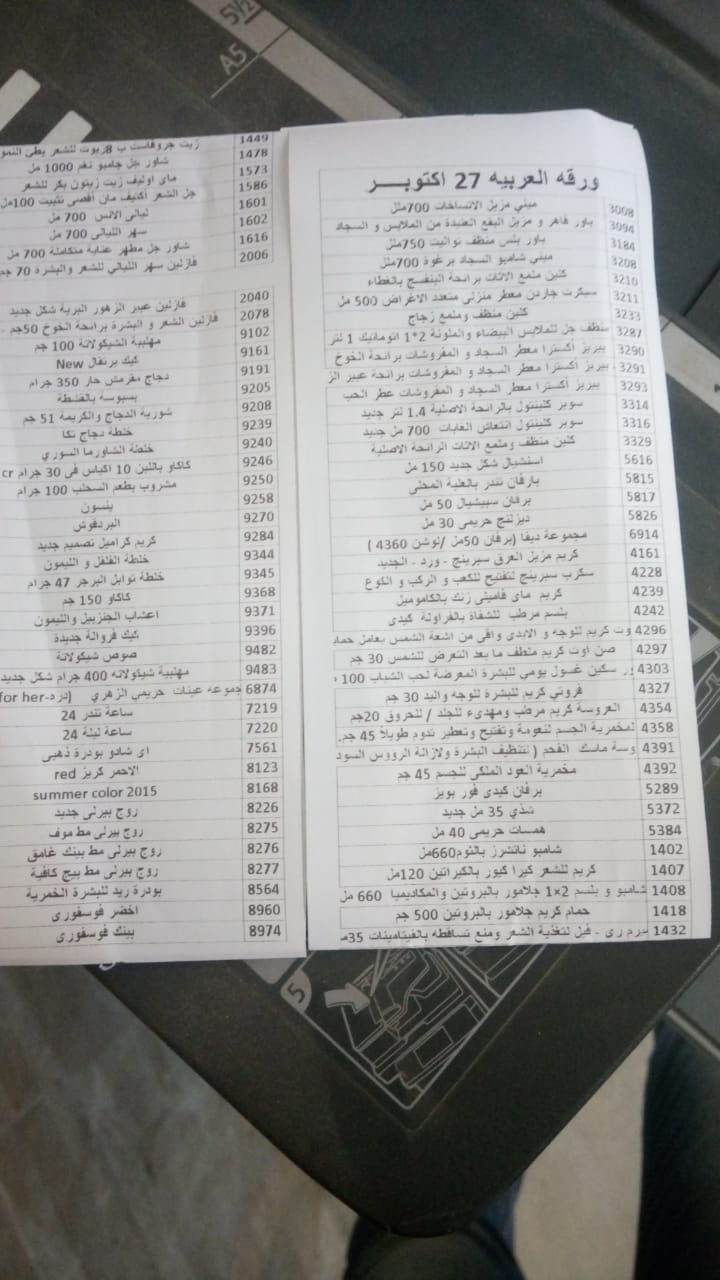 ورقه العربيه 27 اكتوبر
3008 ميني مزيل الاتساخات 700ملل
3094 باور قاهر و مزيل البقع العنيدة من الملابس و السجاد
3184 باور بلس منظف تواليت 750ملل
3208 ميني شامبو السجاد برغوة 700ملل
3210 كلين ملمع الاثاث برائحة البنفسج بالغطاء
3211 سيكرت جاردن معطر منزلي متعدد الاغراض 500 مل
3233 كلين منظف وملمع زجاج
3287 منظف جل للملابس البيضاء والملونة 2*1 اتوماتيك 1 لتر
3290 بيريز أكسترا معطر السجاد و المفروشات برائحة الخوخ
3291 بيريز أكسترا معطر السجاد و المفروشات برائحة عبير الز
3293 بيريز أكسترا معطر السجاد و المفروشات عطر الحب
3314 سوبر كلينتول بالرائحة الاصلية 1.4 لتر جديد
3316 سوبر كلينتول انتعاش الغابات 700 مل جديد
3329 كلين منظف وملمع الاثاث الرائحة الاصلية
5616 استشيال شكل جديد 150 مل
5815 بارفان تندر بالعلبة المحلى
5817 برفان سبيشيال 50 مل
5826 ديزلنج حريمى 30 مل
6914 مجموعة ديفا (برفان 50مل /لوشن 4360 )
4161 كريم مزيل العرق سبرينج - ورد - الجديد
4228 سكرب سبرينج لتفتيح للكعب و الركب و الكوع
4239 كريم ماى فاميلى زنك بالكاموميل
4242 بلسم مرطب للشفاة بالفراولة كيدى
4296 وت كريم للوجه و الايدى واقى من اشعة الشمس بعامل حماي
4297 صن اوت كريم ملطف ما بعد التعرض للشمس 30 جم
4303 ور سكين غسول يومى للبشرة المعرضة لحب الشباب 100 م
4327 فروتي كريم للبشرة للوجه واليد 30 جم
4354 العروسة كريم مرطب ومهدىء للجلد / للحروق 20جم
4358 لمخمرية الجسم لنعومة وتفتيح وتعطير تدوم طويلاً 45 جم.
4391 وسة ماسك الفحم ( لتنظيف البشرة ولازالة الرووس السود
4392 مخمرية العود الملكى للجسم 45 جم
5289 برفان كيدى فور بويز
5372 شذي 35 مل جديد
5384 همسات حريمى 40 مل
1402 شامبو ناتشرز بالثوم660مل
1407 كريم للشعر كيرا كيور بالكيراتين 120مل
1408 شامبو و بلسم 2×1 جلامور بالبروتين والمكاديميا 660 مل
1418 حمام كريم جلامور بالبروتين 500 جم
1432 درم رى - فيل لتغذية الشعر ومنع تساقطه بالفيتامينات 35م
1449 زيت جروفاست ب 8زيوت للشعر بطى النمو
1478 شاور جل جامبو نغم 1000 مل
1573 ماى اوليف زيت زيتون بكر للشعر
1586 جل الشعر أكتيف مان أقصى تثبيت 100مل
1601 ليالى الانس 700 مل
1602 سهر الليالى 700 مل
1616 شاور جل مطهر عناية متكاملة 700 مل
2006 فازلين سهر الليالي للشعر والبشرة 70 جم
2040 فازلين عبير الزهور البرية شكل جديد
2078 فازلين الشعر و البشرة برائحة الخوخ 50جم
9102 مهلبية الشيكولاتة 100 جم
9161 كيك برتقال New
9191 دجاج مقرمش حار 350 جرام
9205 بسبوسة بالقشطة
9208 شوربة الدجاج والكريمة 51 جم
9239 خلطة دجاج تكا
9240 خلطة الشاورما السوري
9246 كاكاو باللبن 10 اكياس فى 30 جرام cr
9250 مشروب بطعم السحلب 100 جرام
9258 ينسون
9270 البردقوش
9284 كريم كراميل تصميم جديد
9344 خلطة الفلفل و الليمون
9345 خلطة توابل البرجر 47 جرام
9368 كاكاو 150 جم
9371 اعشاب الجنزبيل والليمون
9396 كيك فروالة جديدة
9482 صوص شيكولاتة
9483 مهلبية شيكولاته 400 جرام شكل جديد
6874 جموعه عينات حريمي الزهري (درد-for her
7219 ساعة تندر 24
7220 ساعة ليلة 24
7561 اى شادو بودرة ذهبى
8123 الاحمر كريز red
8168 summer color 2015
8226 روج بيرلى جديد
8275 روج بيرلى مط موف
8276 روج بيرلى مط بينك غامق
8277 روج بيرلى مط بيج كافية
8564 بودرة ريد للبشرة الخمرية
8960 اخضر فوسفورى
8974 بينك فوسفورى
5½
A5
5